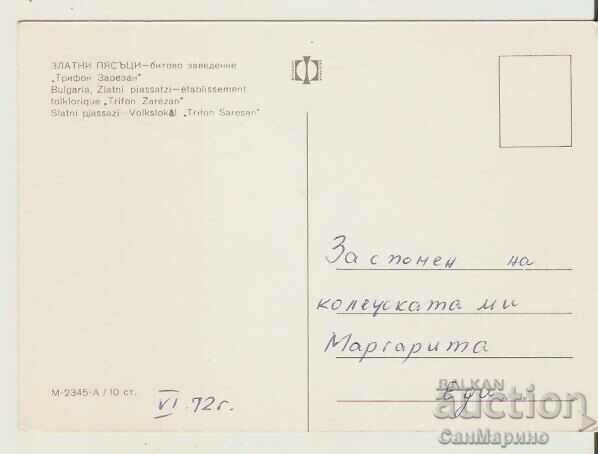 ЗЛАТНИ ПЯСЪЦИ—битово заведение
„Трифон Зарезан"
Bulgaria, Zlatni piassatzi—établissement
folklorique „Trifon Zarezan"
Slatni pjassazi—Volkslokal „Trifon Saresan"
За спомен на
колежката ми
Маргарита
Еда
М-2345-А / 10 ст.
VI. 72г.
BALKAN
auction
СанМарино